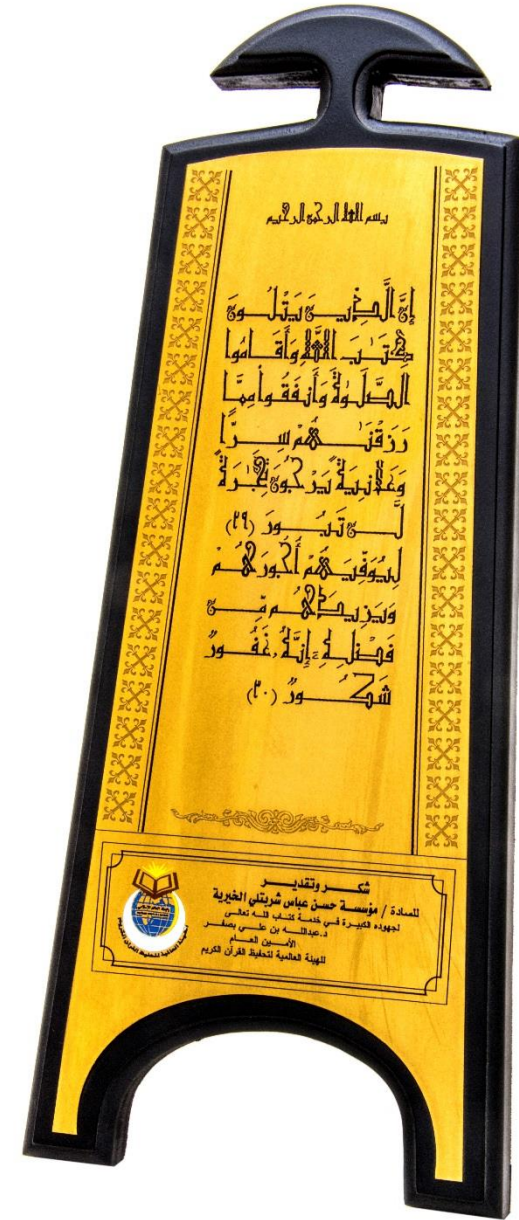 بسم الله الرحمن الرحيم
إِنَّ الَّذِينَ يَتْلُونَ
كِتَٰبَ اللَّهِ وَأَقَامُوا
الصَّلَوٰةَ وَأَنفَقُوا مِمَّا
رَزَقْنَٰهُمْ سِرًّا
وَعَلَانِيَةً يَرْجُونَ تِجَٰرَةً
لَّن تَبُورَ (٢٩)
لِيُوَفِّيَهُمْ أُجُورَهُمْ
وَيَزِيدَهُم مِّن
فَضْلِهِۦٓ إِنَّهُۥ غَفُورٌ
شَكُورٌ (٣٠)
شكر وتقدير
للسادة / مؤسسة حسن عباس شربتلي الخيرية
لجهوده الكبيرة في خدمة كتاب الله تعالى
د.عبدالله بن علي بصفر
الأمين العام
للهيئة العالمية لتحفيظ القرآن الكريم